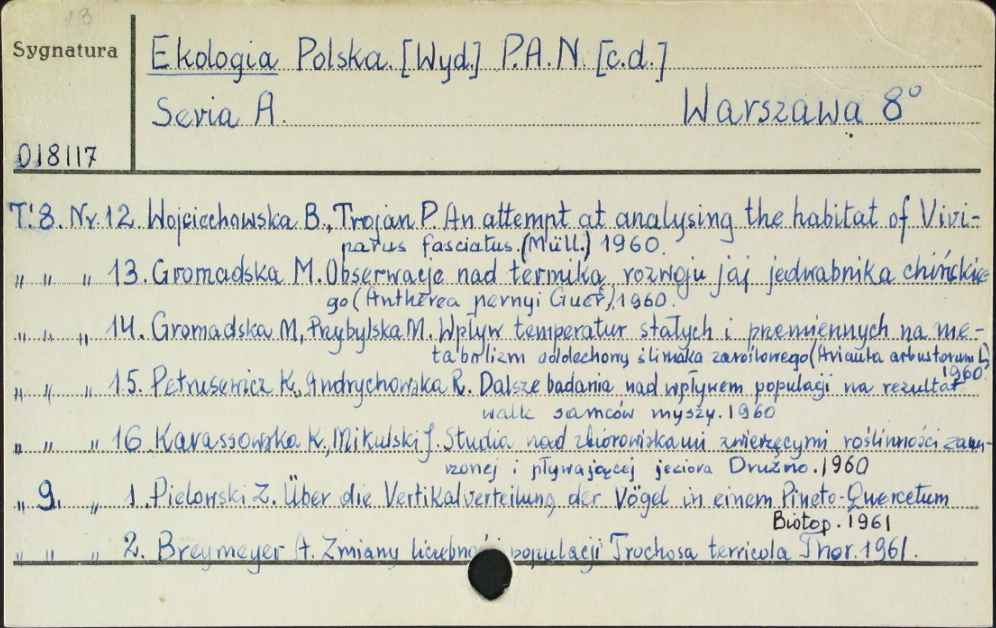 13
Sygnatura
Ekologia Polska. [Wyd.] P.A.N. [c.d.]
Seria A. Warszawa 8°
018117
T. 8. Nr. 12. Wojciechowska B., Trojan P. An attempt at analysing the habitat of Vivi-
parus fasciatus. (Müll.) 1960.
" " " 13. Gromadska M. Obserwacje nad termiką rozwoju jaj jedwabnika chińskie-
go (Antherea pernyi Guer.). 1960.
" " " 14. Gromadska M, Przybylska M. Wpływ temperatur stałych i przemiennych na me-
tabolizm oddechowy ślimaka zaroślowego (Arianta arbustorum L.)
1960.
" " " 15. Petrusewicz K., Andrychowska R. Dalsze badania nad wpływem populacji na rezultat
walk samców myszy. 1960
" " " 16. Karassowska K., Mikulski J. Studia nad zbiorowiskami zwierzęcymi roślinności zanu-
rzonej i pływającej jeziora Drużno. 1960
" 9. " 1. Pielowski Z. Über die Vertikalverteilung der Vögel in einem Pineto-Quercetum
Biotop. 1961
" " " 2. Breymeyer A. Zmiany liczebności populacji Trochosa terricola Thor. 1961.